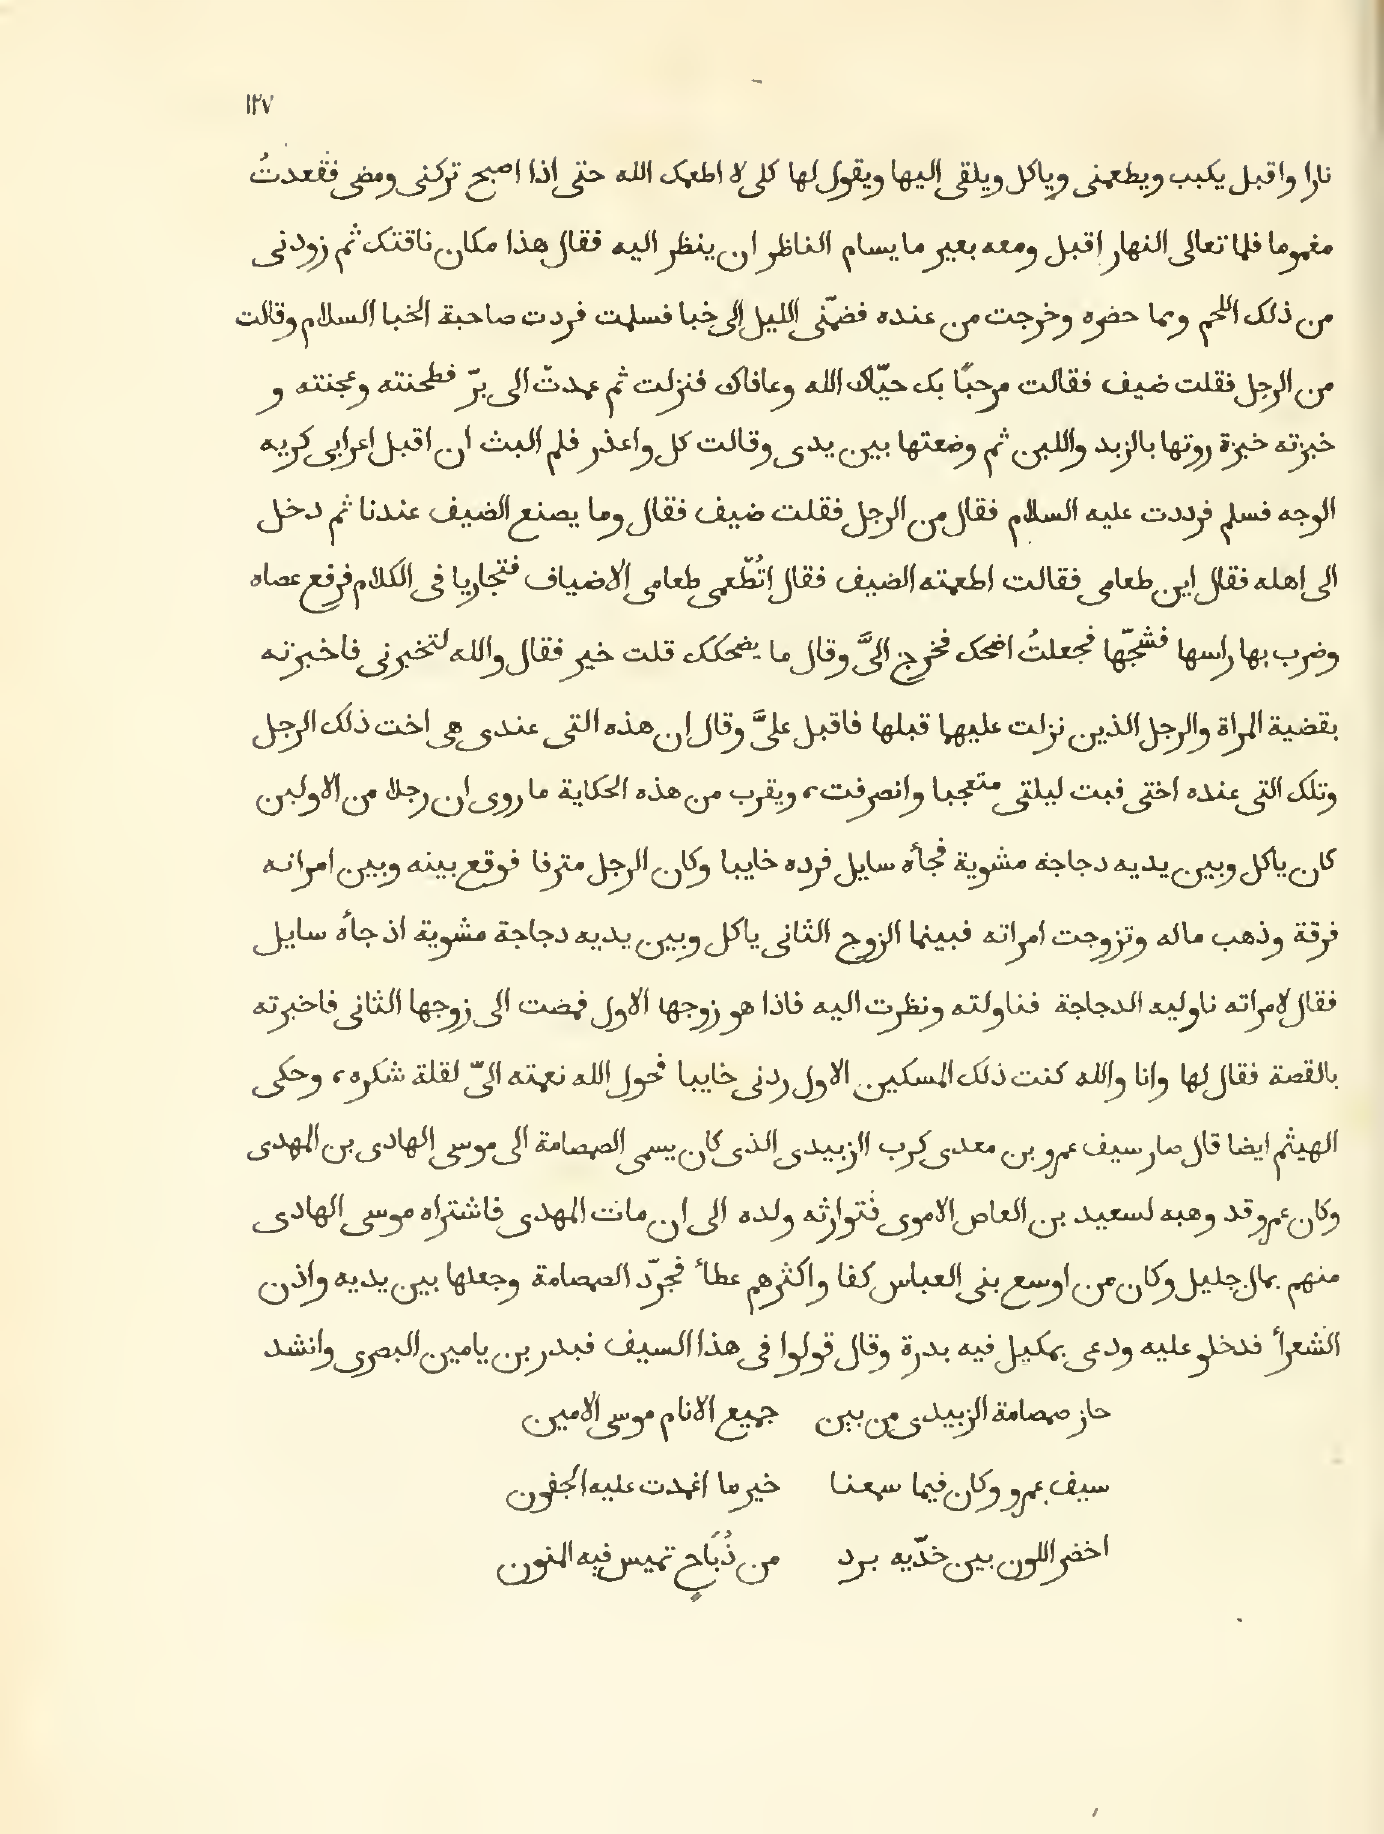 ١٢٧
نارا واقبل يكبب ويطعمنى وياكل ويلقى اليها ويقول لها كلى لا اطعمك الله حتى اذا اصبح تركنى ومضى فقعدتُ
مغموما فلما تعالى النهار اقبل ومعه بعير ما يسام الناظر ان ينظر اليه فقال هذا مكان ناقتك ثم زودنى
من ذلك اللحم ومما حضره وخرجت من عنده فضمّنى الليل الى خبا فسلمت فردت صاحبة الخبا السلام وقالت
من الرجل فقلت ضيف فقالت مرحبًا بك حيّاك الله وعافاك فنزلت ثم عمدتّ الى برّ فطحنته وعجنته و
خبزته خبزة روتها بالزبد واللبن ثم وضعتها بين يدى وقالت كل واعذر فلم البث ان اقبل اعرابى كريه
الوجه فسلم فرددت عليه السلام فقال من الرجل فقلت ضيف فقال وما يصنع الضيف عندنا ثم دخل
الى اهله فقال اين طعامى فقالت اطعمته الضيف فقال اتُطّعمى طعامى الاضياف فتجاريا فى الكلام فرفع عصاه
وضرب بها راسها فشجّها فجعلتُ اضحك فخرج الىَّ وقال ما يضحكك قلت خير فقال والله لتخبرنى فاخبرته
بقضية المراة والرجل الذين نزلت عليهما قبلها فاقبل علىَّ وقال ان هذه التى عندى هى اخت ذلك الرجل
وتلك التى عنده اختى فبت ليلتى متعجبا وانصرفت، ويقرب من هذه الحكاية ما روى ان رجلا من الاولين
كان ياكل وبين يديه دجاجة مشوية فجأه سايل فرده خايبا وكان الرجل مترفا فوقع بينه وبين امراته
فرقة وذهب ماله وتزوجت امراته فبينما الزوج الثانى ياكل وبين يديه دجاجة مشوية اذ جأه سايل
فقال لامراته ناوليه الدجاجة فناولته ونظرت اليه فاذا هو زوجها الاول فمضت الى زوجها الثانى فاخبرته
بالقصة فقال لها وانا والله كنت ذلك المسكين الاول ردنى خايبا فحول الله نعمته الىّ لقلة شكره، وحكى
الهيثم ايضا قال صار سيف عمرو بن معدى كرب الزبيدى الذى كان يسمى الصمصامة الى موسى الهادى بن المهدى
وكان عمرو قد وهبه لسعيد بن العاص الاموى فتوارثه ولده الى ان مات المهدى فاشتراه موسى الهادى
منهم بمال جليل وكان من اوسع بنى العباس كفا واكثرهم عطأ فجرّد الصمصامة وجعلها بين يديه واذن
الشعرأ فدخلو عليه ودعى بمكيل فيه بدرة وقال قولوا فى هذا السيف فبدر بن يامين البصرى وانشد
حاز صمصامة الزبيدى من بين جميع الانام موسى الامين
سيف عمرو وكان فيما سمعنا خير ما اغمدت عليه الجفون
اخضر اللون بين خدّيه برد من ذُبَاح تميس فيه المنون